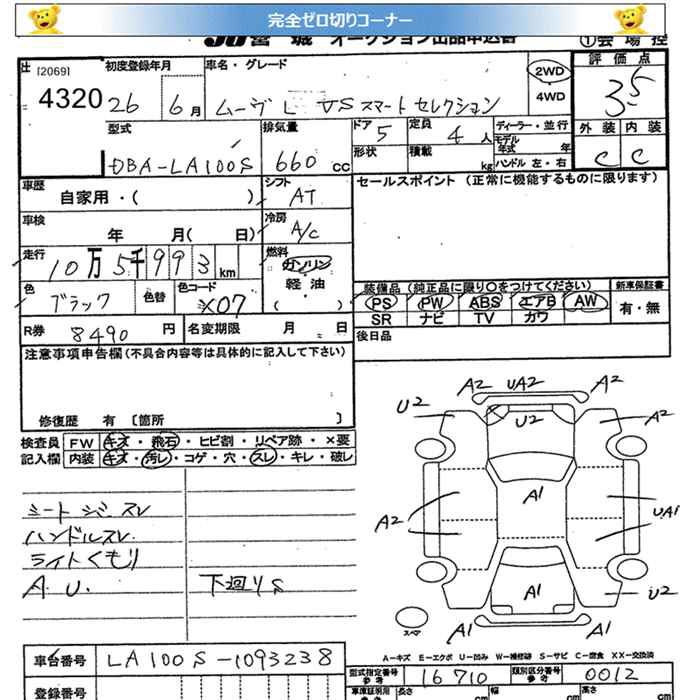 完全ゼロ切りコーナー
JU宮城 オークション出品申込書 ①会場控
[2069] 初度登録年月 車名・グレード 2WD 評価点
4320 26 6月 ムーヴL VSスマートセレクション 4WD 3.5
型式 排気量 ドア 5 定員 4人 ディーラー・並行 外装 内装
モデル年式 年
DBA-LA100S 660cc 形状 積載 kg ハンドル 左・右 C C
車歴 シフト セールスポイント (正常に機能するものに限ります)
自家用・( ) AT
車検 冷房
年 月( 日) A/C
走行 燃料
10万5千993km ガソリン
軽油
色 色替 色コード ( ) 装備品 (純正品に限り○をつけてください) 新車保証書
ブラック X07 PS PW ABS エアB AW 有・無
SR ナビ TV カワ
R券 8490円 名変期限 月 日 後日品
注意事項申告欄(不具合内容等は具体的に記入して下さい)
修復歴 有 [箇所 ]
検査員 FW キズ・飛石・ヒビ割・リペア跡・×要
記入欄 内装 キズ・汚レ・コゲ・穴・スレ・キレ・破レ
シートシミ スレ
ハンドルスレ
ライトくもり
A.U. 下廻りS
A2 UA2 A2
U2 U2 A2
A1
A2 UA1
A1 U2
A1 A1
スペア
A-キズ E-エクボ U-凹み W-補修跡 S-サビ C-腐食 XX-交換済
車台番号 LA100S-1093238
型式指定番号 参考 16710 類別区分番号 参考 0012
登録番号 車庫証明用 参考 長さ cm 幅 cm 高さ cm